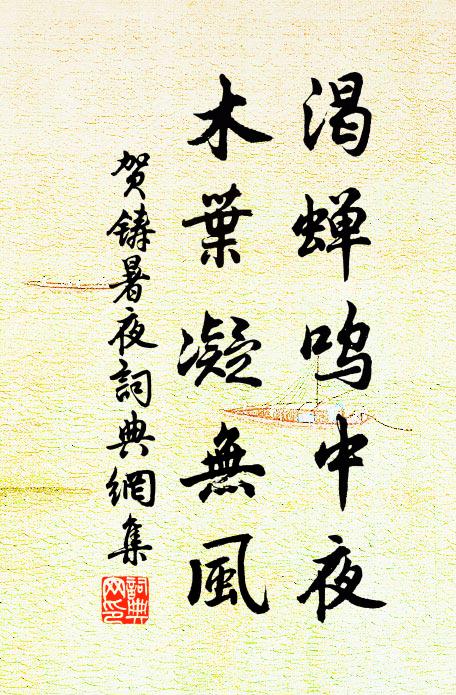 渴蝉鸣中夜
木葉凝無風
贺铸暑夜詞典網集
詞典